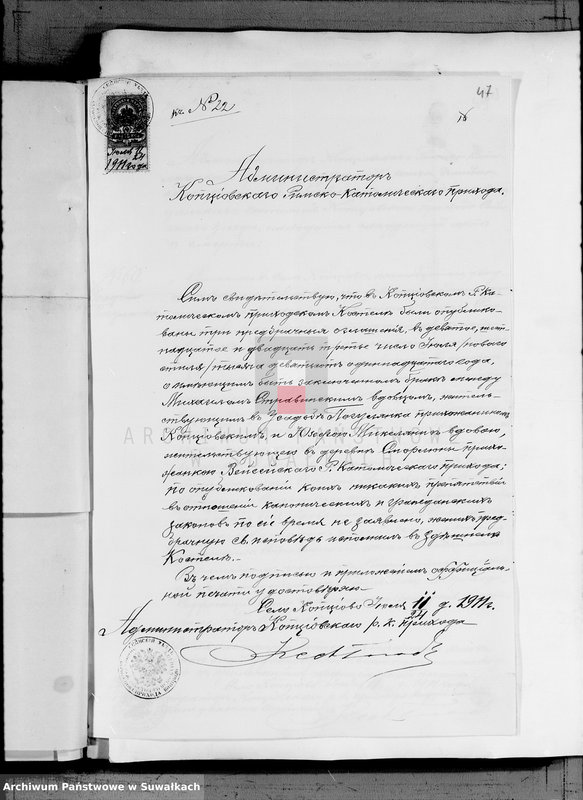 47
къ № 22
Администраторъ
Копціовскаго Римско-Католическаго прихода.
Симъ свидѣтельствую, что въ Копціовскомъ Р. Ка-
толическомъ приходскомъ Костелѣ были опублико-
ваны три предбрачныя оглашенія, въ девятое, шест-
надцатое и двадцать третье число Іюля /новаго
стиля/ тысяча девятьсотъ одиннадцатаго года,
о имѣющемъ быть заключенномъ бракѣ между
Михаиломъ вдовцомъ, житель-
ствующимъ въ прихожаниномъ
Копціовскимъ, и Юзефою вдовою,
жительствующею въ деревнѣ прихо-
жанкою Вейсейскаго Р. Католическаго прихода;
по опубликованіи коихъ никакихъ препятствій
въ отношеніи каноническихъ и гражданскихъ
законовъ по сіе время не заявлено, женихъ пред-
брачную св. исповѣдь исполнилъ въ здѣшнемъ
Костелѣ.
Въ чемъ подписью и приложеніемъ оффиціаль-
ной печати удостовѣряю.
Село Копціово Іюля 11/24 д. 1911 г.
Администраторъ Копціовскаго р. к. прихода
1911 года
ARCHIWUM PAŃSTWOWE
W SUWAŁKACH
Archiwum Państwowe w Suwałkach